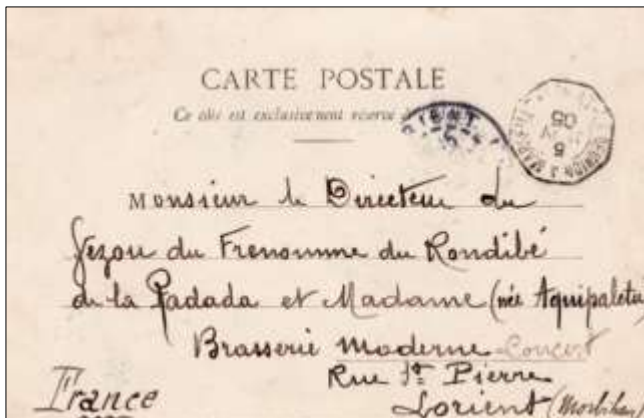 CARTE POSTALE
Ce côté est exclusivement réservé
5
05
RÉUNION À MAR
Monsieur le Directeur du
Gezou du Frenomme du Rondibé
de la Padada et Madame (née Aquipaletu
Brasserie Moderne Concert
Rue St Pierre
France
Lorient (Morbihan